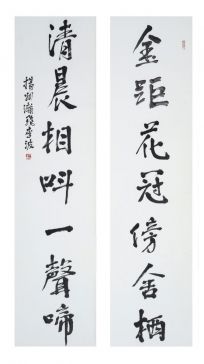 金距花冠傍舍栖
清晨相叫一聲啼